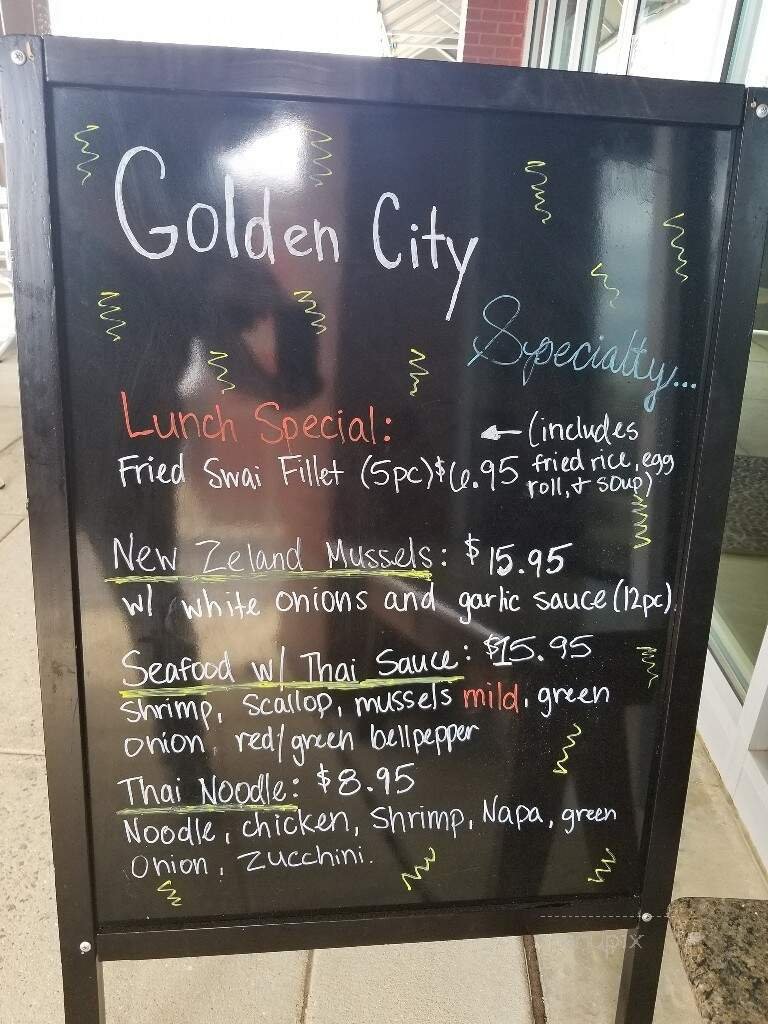 Golden City
Specialty...
Lunch Special:
Fried Swai Fillet (5pc) $6.95
← (includes
fried rice, egg
roll, + soup)
New Zeland Mussels: $15.95
w/ white onions and garlic sauce (12pc)
Seafood w/ Thai Sauce: $15.95
shrimp, scallop, mussels mild, green
onion, red/green bellpepper
Thai Noodle: $8.95
Noodle, chicken, Shrimp, Napa, green
Onion, Zucchini.